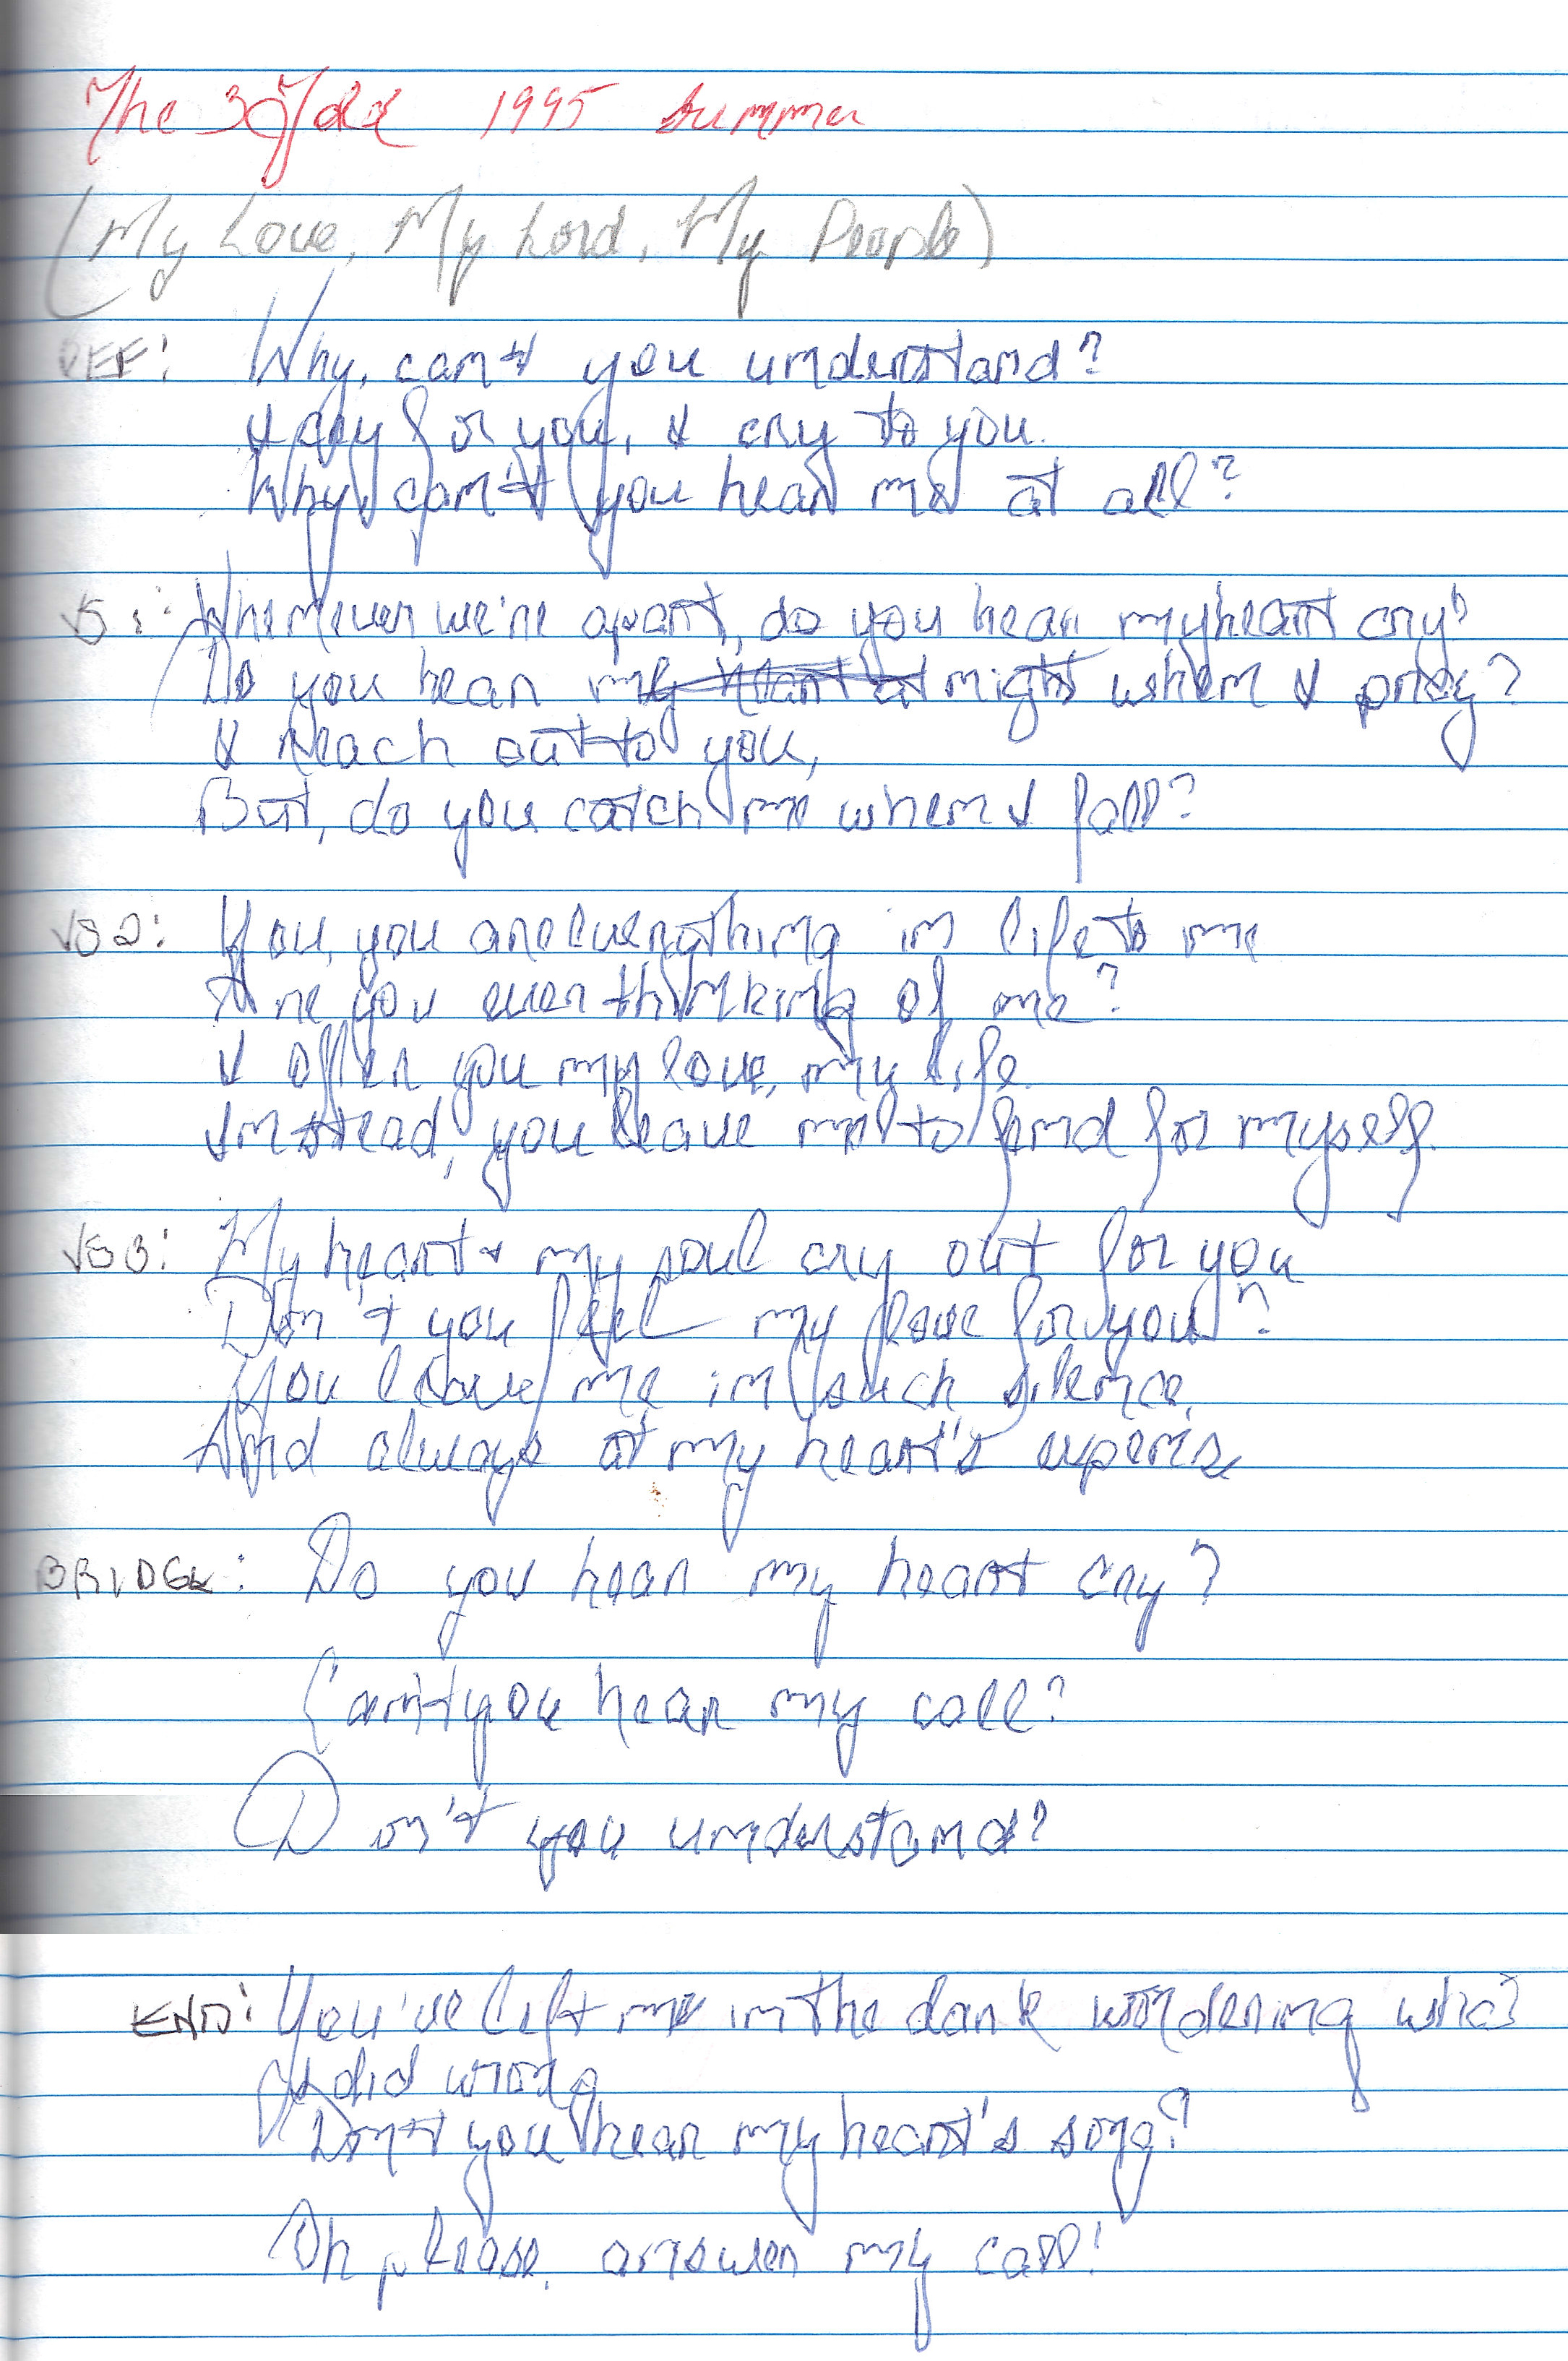 The 3 Fold 1995 Summer
(My Love, My Lord, My People)
REF: Why, can't you understand?
I cry for you, I cry to you.
Why, can't you hear me at all?
VS 1: Whenever we're apart, do you hear my heart cry?
Do you hear me at night when I pray?
I reach out to you,
But, do you catch me when I fall?
VS 2: You, you are everything in life to me
Are you ever thinking of me?
I offer you my love, my life.
Instead, you leave me to fend for myself.
VS 3: My heart & my soul cry out for you
Don't you feel my love for you?
You leave me in such silence,
And always at my heart's expense
BRIDGE: Do you hear my heart cry?
Can't you hear my call?
Don't you understand?
END: You've left me in the dark wondering what
I did wrong
Don't you hear my heart's song?
Oh please, answer my call!